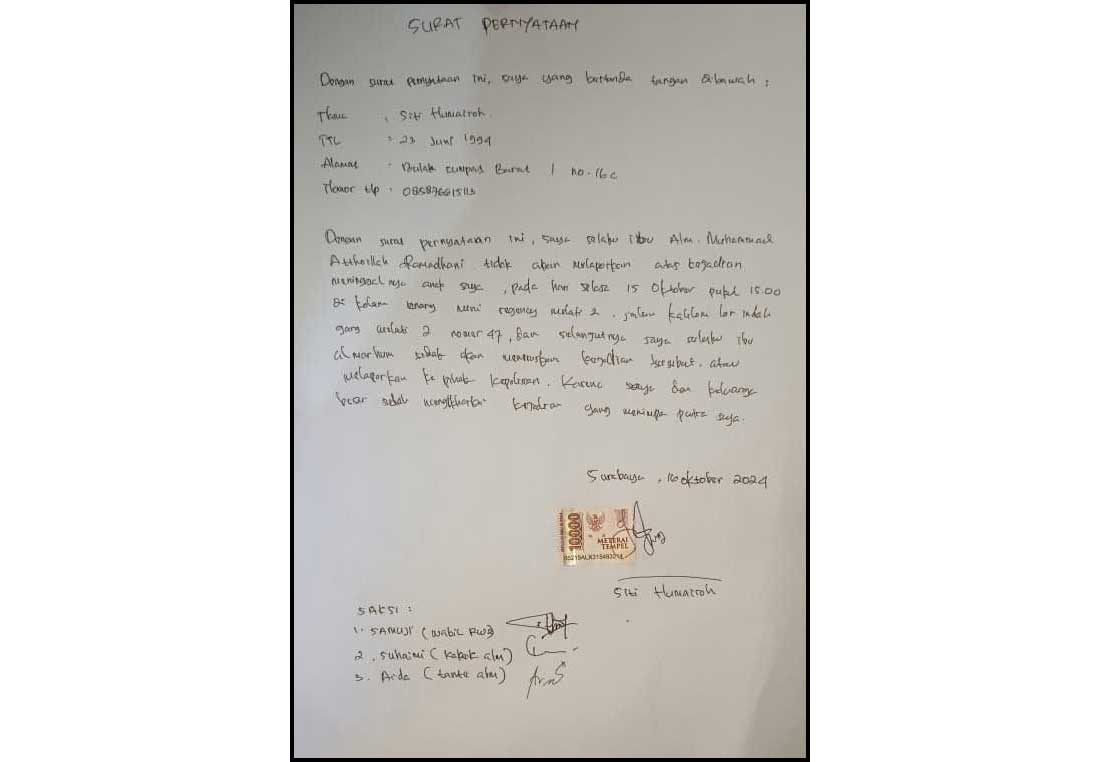 SURAT PERNYATAAN
Dengan surat pernyataan ini, saya yang bertanda tangan dibawah :
Nama : Siti Humairoh.
TTL : 23 Juni 1994
Alamat : Bulak Cumpat Barat 1 no. 16 c
Nomor tlp :
Dengan surat pernyataan ini, saya selaku ibu Alm. Muhammad
Ramadhani tidak akan melaporkan atas kejadian
meninggal nya anak saya, pada hari selasa 15 Oktober pukul 15.00
di kolam renang regency melati 2. jalan kalilom lor indah
gang melati 2 nomer 47, dan selanjutnya saya selaku ibu
almarhum tidak akan kejadian tersebut. atau
melaporkan ke pihak kepolisian. Karena saya dan keluarga
besar sudah kejadian yang menimpa putra saya.
Surabaya, 16 oktober 2024
10000
METERAI
TEMPEL
Siti Humairoh
SAKSI :
1. SAMUJI (wakil RW3)
2. Suhaimi (kakek alm)
3. Aida (tante alm)